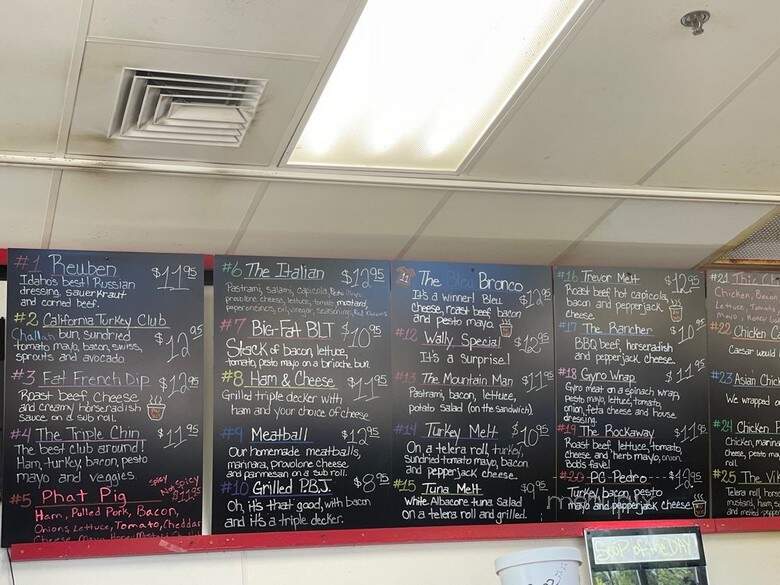 #1 Reuben $11.95
Idaho's best! Russian
dressing, sauerkraut
and corned beef.
#2 California Turkey Club $12.95
Challah bun, sundried
tomato mayo, bacon, swiss,
sprouts and avocado
#3 Fat French Dip $12.95
Roast beef, cheese
and creamy horseradish
sauce on a sub roll.
#4 The Triple Chin $11.95
The best club around!
Ham, turkey, bacon, pesto
mayo and veggies.
#5 Phat Pig
Ham, Pulled Pork, Bacon,
Onions, Lettuce, Tomato, Cheddar
#6 The Italian $12.95
Pastrami, salami, capicola,
provolone cheese, lettuce, tomato, mustard,
pepperoncinis, oil, vinegar, seasoning,
#7 Big-Fat BLT $10.95
Stack of bacon, lettuce,
tomato, pesto mayo on a brioche bun.
#8 Ham & Cheese $11.95
Grilled triple decker with
ham and your choice of cheese
#9 Meatball $12.95
Our homemade meatballs,
marinara, provolone cheese
and parmesan on a sub roll.
#10 Grilled P.B.J. $8.95
Oh, it's that good, with bacon
and it's a triple decker.
#11 The Bleu Bronco $12.95
It's a winner! Bleu
cheese, roast beef, bacon
and pesto mayo
#12 Wally Special $12.95
It's a surprise!
#13 The Mountain Man $11.95
Pastrami, bacon, lettuce,
potato salad (on the sandwich)
#14 Turkey Melt $10.95
On a telera roll, turkey,
sundried tomato mayo, bacon
and pepperjack cheese.
#15 Tuna Melt $9.95
White Albacore tuna salad
on a telera roll and grilled.
#16 Trevor Melt $12.95
Roast beef, hot capicola,
bacon and pepperjack
cheese.
#17 The Rancher $10.95
BBQ beef, horseradish
and pepperjack cheese.
#18 Gyro Wrap $11.95
Gyro meat on a spinach wrap,
pesto mayo, lettuce, tomato,
onion, feta cheese and house
dressing.
#19 The Rockaway $11.95
Roast beef, lettuce, tomato,
cheese and herb mayo, onion.
Bob's fave!
#20 PG Pedro $12.95
Turkey, bacon, pesto
mayo and pepperjack cheese
#21
Chicken,
Lettuce, Tomato,
#22 Chicken
Caesar
#23 Asian
We wrapped
#24 Chicken
Chicken,
pesto
roll.
#25 The
Telera roll,
mustard, ham,
and melted
SOUP of the DAY